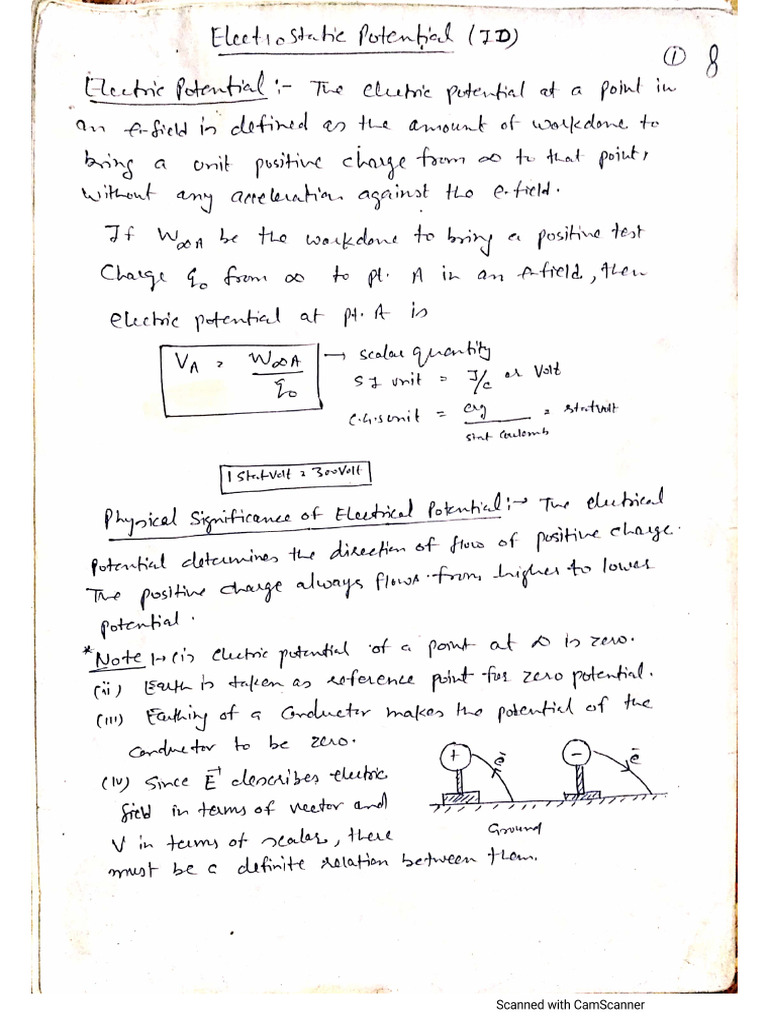 Electrostatic Potential (JD)
① 8
Electric Potential :- The electric potential at a point in
an e-field is defined as the amount of workdone to
bring a unit positive charge from ∞ to that point,
without any acceleration against the e-field.
If W∞A be the workdone to bring a positive test
Charge q₀ from ∞ to pt. A in an e-field, then
electric potential at pt. A is
VA = W∞A / q₀ → scalar quantity
S I unit = J/c or Volt
C.G.S unit = erg / stat Coulomb = statvolt
1 StatVolt = 300 Volt
Physical Significance of Electrical Potential :→ The electrical
Potential determines the direction of flow of positive charge.
The positive charge always flows from higher to lower
potential.
* Note :→ (i) electric potential of a point at ∞ is zero.
(ii) Earth is taken as reference point for zero potential.
(iii) Earthing of a conductor makes the potential of the
conductor to be zero.
(iv) Since E⃗ describes electric
field in terms of vector and
V in terms of scalar, there
must be a definite relation between them.
+ e⁻ - e⁻
Ground
Scanned with CamScanner